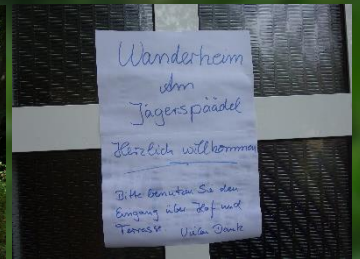 Wanderheim
Am
Jägerspäädel
Herzlich willkommen
Bitte benutzen Sie den
Eingang über Hof und
Terrasse Vielen Dank